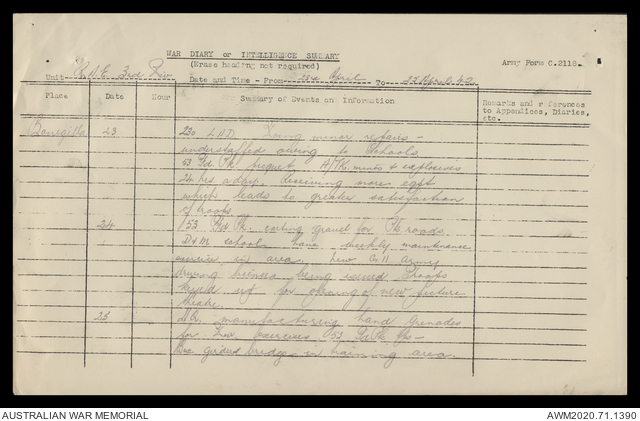 WAR DIARY or INTELLIGENCE SUMMARY
(Erase heading not required)
Army Form C.2118.
Unit R.A.E. 3rd Div
Date and Time - From 23rd April To 27 April 42
Place Date Hour Summary of Events and Information Remarks and references to Appendices, Diaries, etc.
Bonegilla 23 230 LAD Doing minor repairs -
understaffed owing to Schools
53 Fd Pk picquet A/TK mines & explosives
24 hrs a day, receiving more eqpt
which leads to greater satisfaction
of troops
24 53 Fd Pk. carting gravel for Pk roads.
D & M school have weekly maintenance
exercise in area. New Army
driving licences being issued Troops
keyed up for opening of new picture
theatre.
25 H.Q. manufacturing hand Grenades
for exercises 53 Fd Pk
girder bridge in training area.
AUSTRALIAN WAR MEMORIAL
AWM2020.71.1390